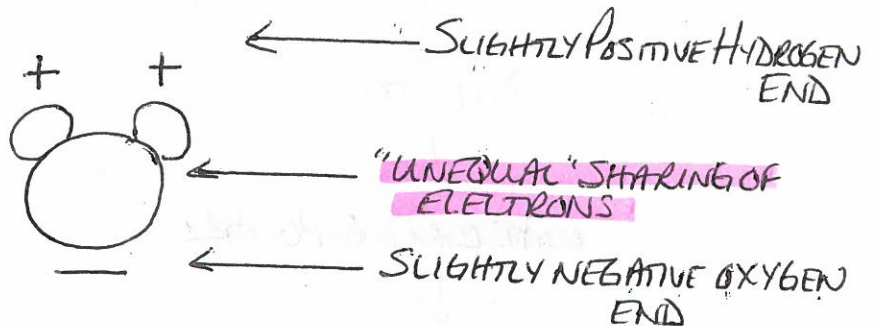 + +
SLIGHTLY POSITIVE HYDROGEN
END
"UNEQUAL" SHARING OF
ELELTRONS
—
SLIGHTLY NEGATIVE OXYGEN
END